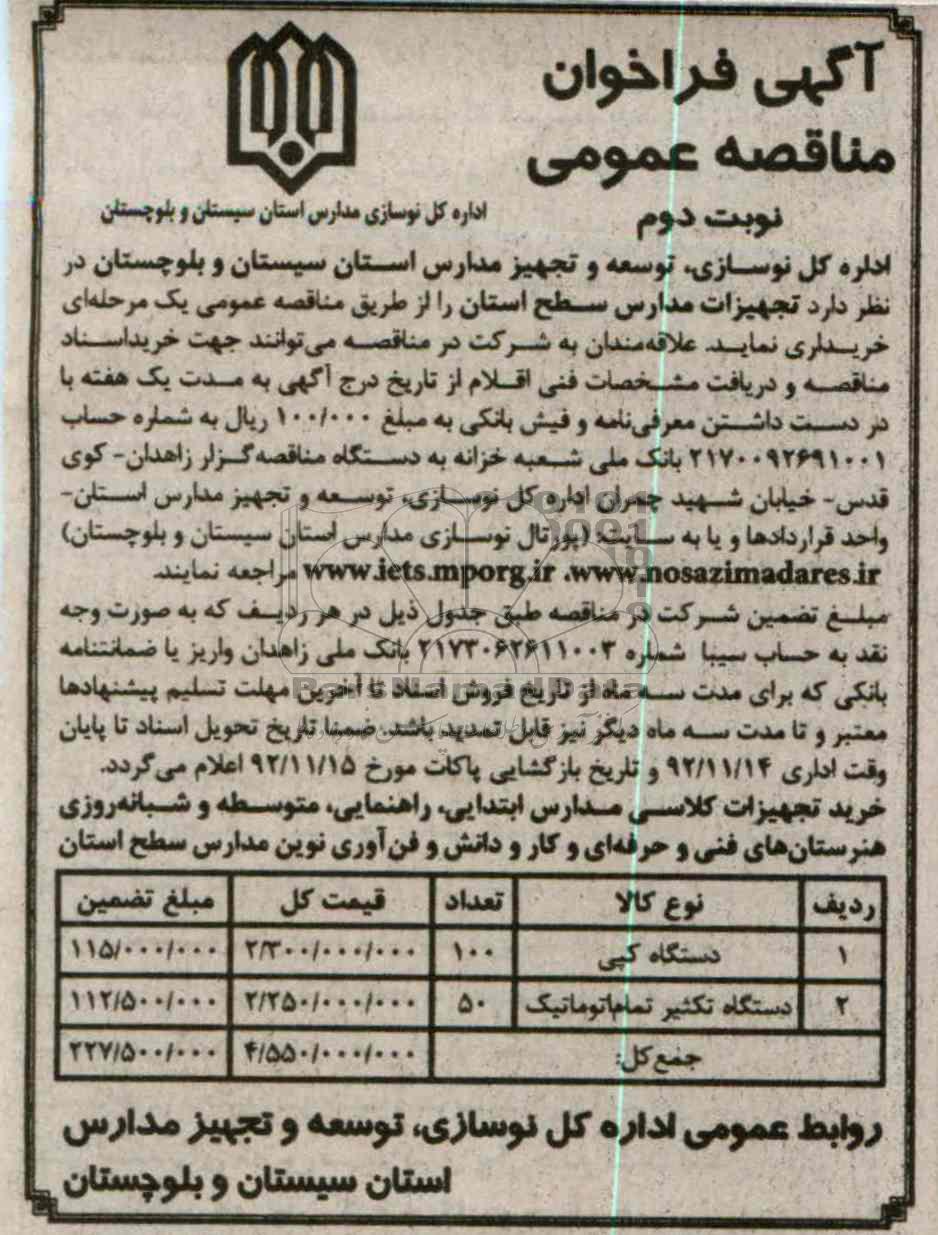 آگهی فراخوان
مناقصه عمومی
نوبت دوم
اداره کل نوسازی مدارس استان سیستان و بلوچستان
اداره کل نوسازی، توسعه و تجهیز مدارس استان سیستان و بلوچستان در
نظر دارد تجهیزات مدارس سطح استان را از طریق مناقصه عمومی یک مرحله‌ای
خریداری نماید. علاقه‌مندان به شرکت در مناقصه می‌توانند جهت خرید اسناد
مناقصه و دریافت مشخصات فنی اقلام از تاریخ درج آگهی به مدت یک هفته با
در دست داشتن معرفی‌نامه و فیش بانکی به مبلغ ۱۰۰/۰۰۰ ریال به شماره حساب
۲۱۷۰۰۹۲۶۹۱۰۰۱ بانک ملی شعبه خزانه به دستگاه مناقصه‌گزار زاهدان- کوی
قدس- خیابان شهید چمران اداره کل نوسازی، توسعه و تجهیز مدارس استان-
واحد قراردادها و یا به سایت: (پورتال نوسازی مدارس استان سیستان و بلوچستان)
www.iets.mporg.ir ،www.nosazimadares.ir مراجعه نمایند.
مبلغ تضمین شرکت در مناقصه طبق جدول ذیل در هر ردیف که به صورت وجه
نقد به حساب سیبا شماره ۲۱۷۳۰۶۲۶۱۱۰۰۳ بانک ملی زاهدان واریز یا ضمانتنامه
بانکی که برای مدت سه ماه از تاریخ فروش اسناد تا آخرین مهلت تسلیم پیشنهادها
معتبر و تا مدت سه ماه دیگر نیز قابل تمدید باشد. ضمنا تاریخ تحویل اسناد تا پایان
وقت اداری ۹۲/۱۱/۱۴ و تاریخ بازگشایی پاکات مورخ ۹۲/۱۱/۱۵ اعلام می‌گردد.
خرید تجهیزات کلاسی مدارس ابتدایی، راهنمایی، متوسطه و شبانه‌روزی
هنرستان‌های فنی و حرفه‌ای و کار و دانش و فن‌آوری نوین مدارس سطح استان
ردیف نوع کالا تعداد قیمت کل مبلغ تضمین
۱ دستگاه کپی ۱۰۰ ۲/۳۰۰/۰۰۰/۰۰۰ ۱۱۵/۰۰۰/۰۰۰
۲ دستگاه تکثیر تمام‌اتوماتیک ۵۰ ۲/۲۵۰/۰۰۰/۰۰۰ ۱۱۲/۵۰۰/۰۰۰
جمع کل: ۴/۵۵۰/۰۰۰/۰۰۰ ۲۲۷/۵۰۰/۰۰۰
روابط عمومی اداره کل نوسازی، توسعه و تجهیز مدارس
استان سیستان و بلوچستان